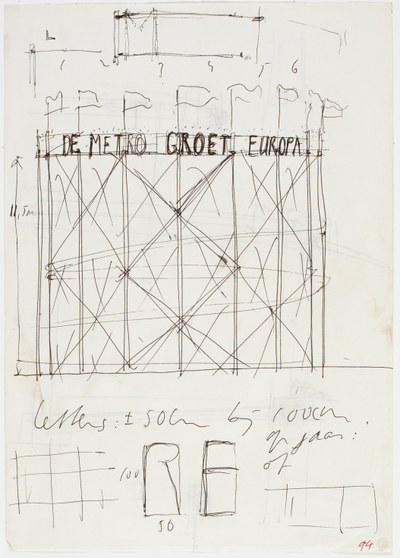 1 2 3 4 5 6
DE METRO GROET EUROPA
11,5m
letters: ± 50cm bij 100cm.
of
100 RE
50
94